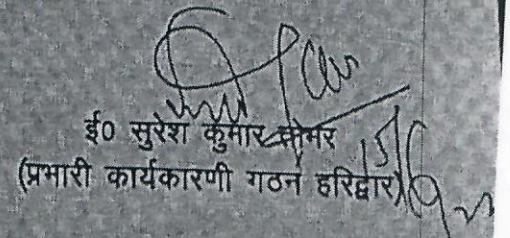 ई0 सुरेश कुमार तोमर
(प्रभारी कार्यकारणी गठन हरिद्वार)